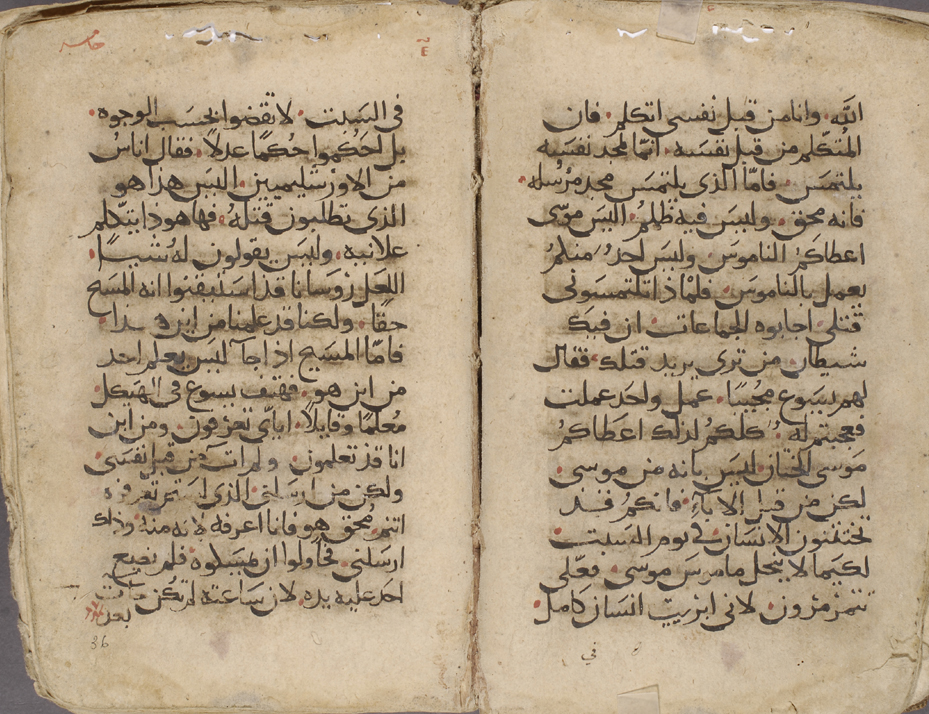 الله وانا من قبل نفسي اتكلم فان
المتكلم من قبل نفسه انما لمجد نفسه
يلتمس فاما الذي يلتمس مجد مرسله
فانه محق وليس فيه ظلم اليس موسى
اعطاكم الناموس وليس احد منكم
يعمل بالناموس فلماذا تلتمسوني
قتلي اجابوه الجماعات ان فيك
شيطان من ترى يريد قتلك فقال
لهم يسوع مجيبا عمل واحد عملت
فعجبتم له كلكم لذلك اعطاكم
موسى الختان ليس بانه من موسى
لكن من قبل الاباء فانكم قد
تختتنون الانسان في يوم السبت
لكيما لا ينحل ناموس موسى فعلي
تتمرمرون لاني ابريت انسان كامل
في
في السبت لا تقضوا بحسب الوجوه
بل احكموا حكما عدلا فقال اناس
من الاورشليميين اليس هذا هو
الذي تطلبون قتله فها هوذا يتكلم
علانيه وليس يقولون له شيا
العل روسانا قد استيقنوا انه المسيح
حقا ولكنا قد علمنا من اين هذا
فاما المسيح اذا جا ليس يعلم احد
من اين هو فهتف يسوع في الهيكل
معلما وقايلا اياي تعرفون ومن اين
انا قد تعلمون ولم ات من قبل نفسي
ولكن من ارسلني الذي لستم تعرفوه
انتم محق هو فانا اعرفه لانه منه وذلك
ارسلني فحاولوا ان يمسكوه فلم يضع
احد عليه يده لان ساعته لم تكن جات
بعد
36